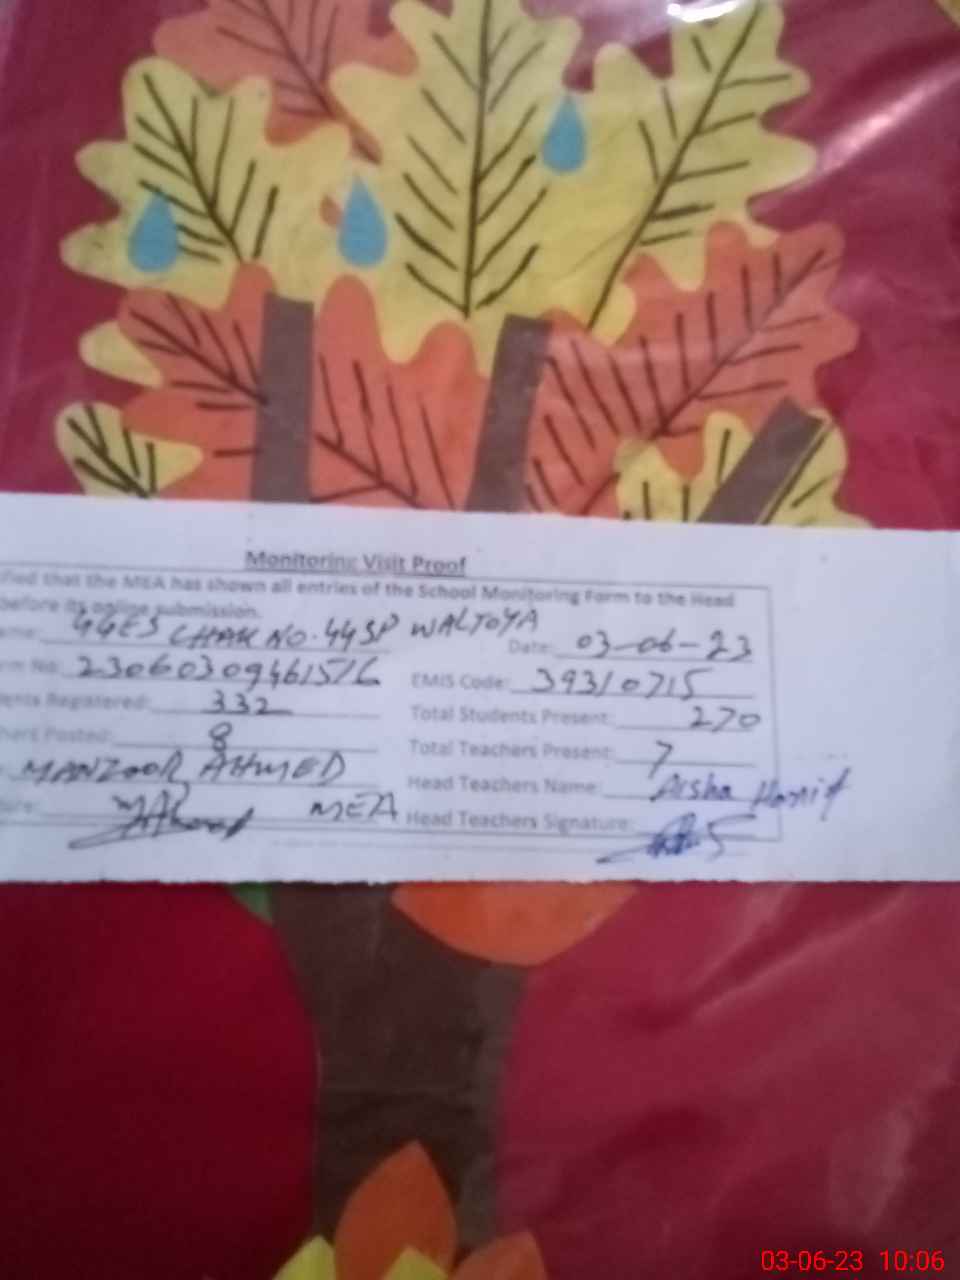 Monitoring Visit Proof
ified that the MEA has shown all entries of the School Monitoring Form to the Head
before its online submission.
ame: GGES CHAK NO. 44SP WALTOYA Date: 03-06-23
rm No: 23060309461516 EMIS Code: 39310715
ents Registered: 332 Total Students Present: 270
hers Posted: 8 Total Teachers Present: 7
MANZOOR AHMED Head Teachers Name: Aisha Hanif
ure: MEA Head Teachers Signature:
03-06-23 10:06